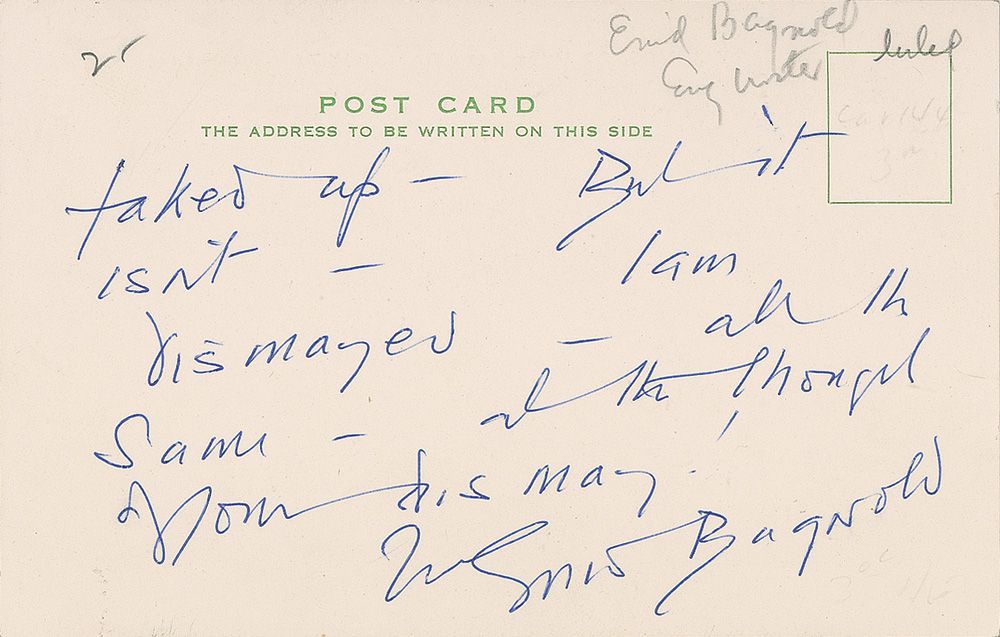 Enid Bagnold
Eng writer
POST CARD
THE ADDRESS TO BE WRITTEN ON THIS SIDE
faked up — But it
isn't — I am
dismayed — all the
same — at the thought
of your dismay.
Enid Bagnold